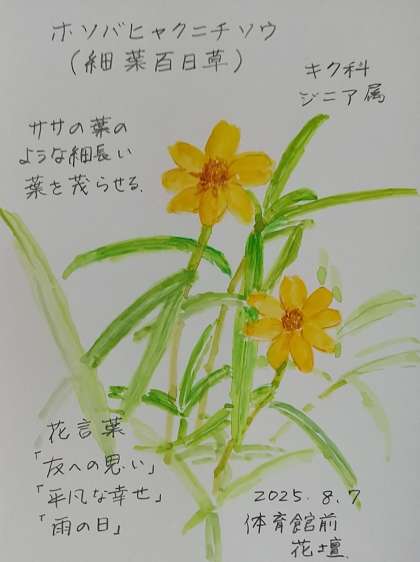 ホソバヒャクニチソウ
(細葉百日草)
キク科
ジニア属
ササの葉の
ような細長い
葉を茂らせる.
花言葉
「友への思い」
「平凡な幸せ」
「雨の日」
2025.8.7
体育館前
花壇.